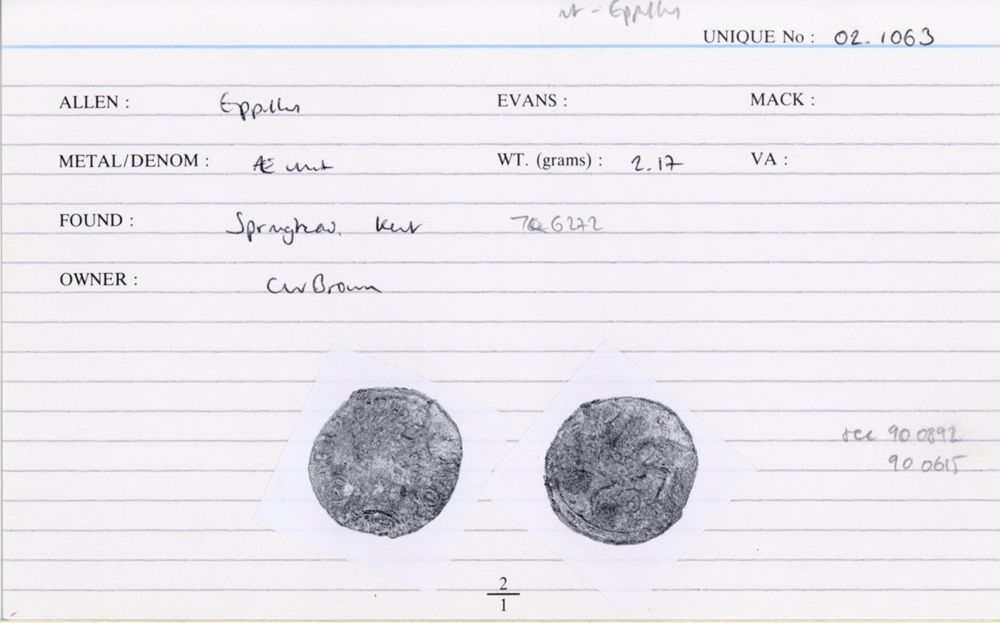 Eppillus
UNIQUE No : 02.1063
ALLEN : Eppillus EVANS : MACK :
METAL/DENOM : Æ unit WT. (grams) : 2.17 VA :
FOUND : Springhead, Kent TQ 6272
OWNER : CW Brown
see 90 0892
90 0615
2
1